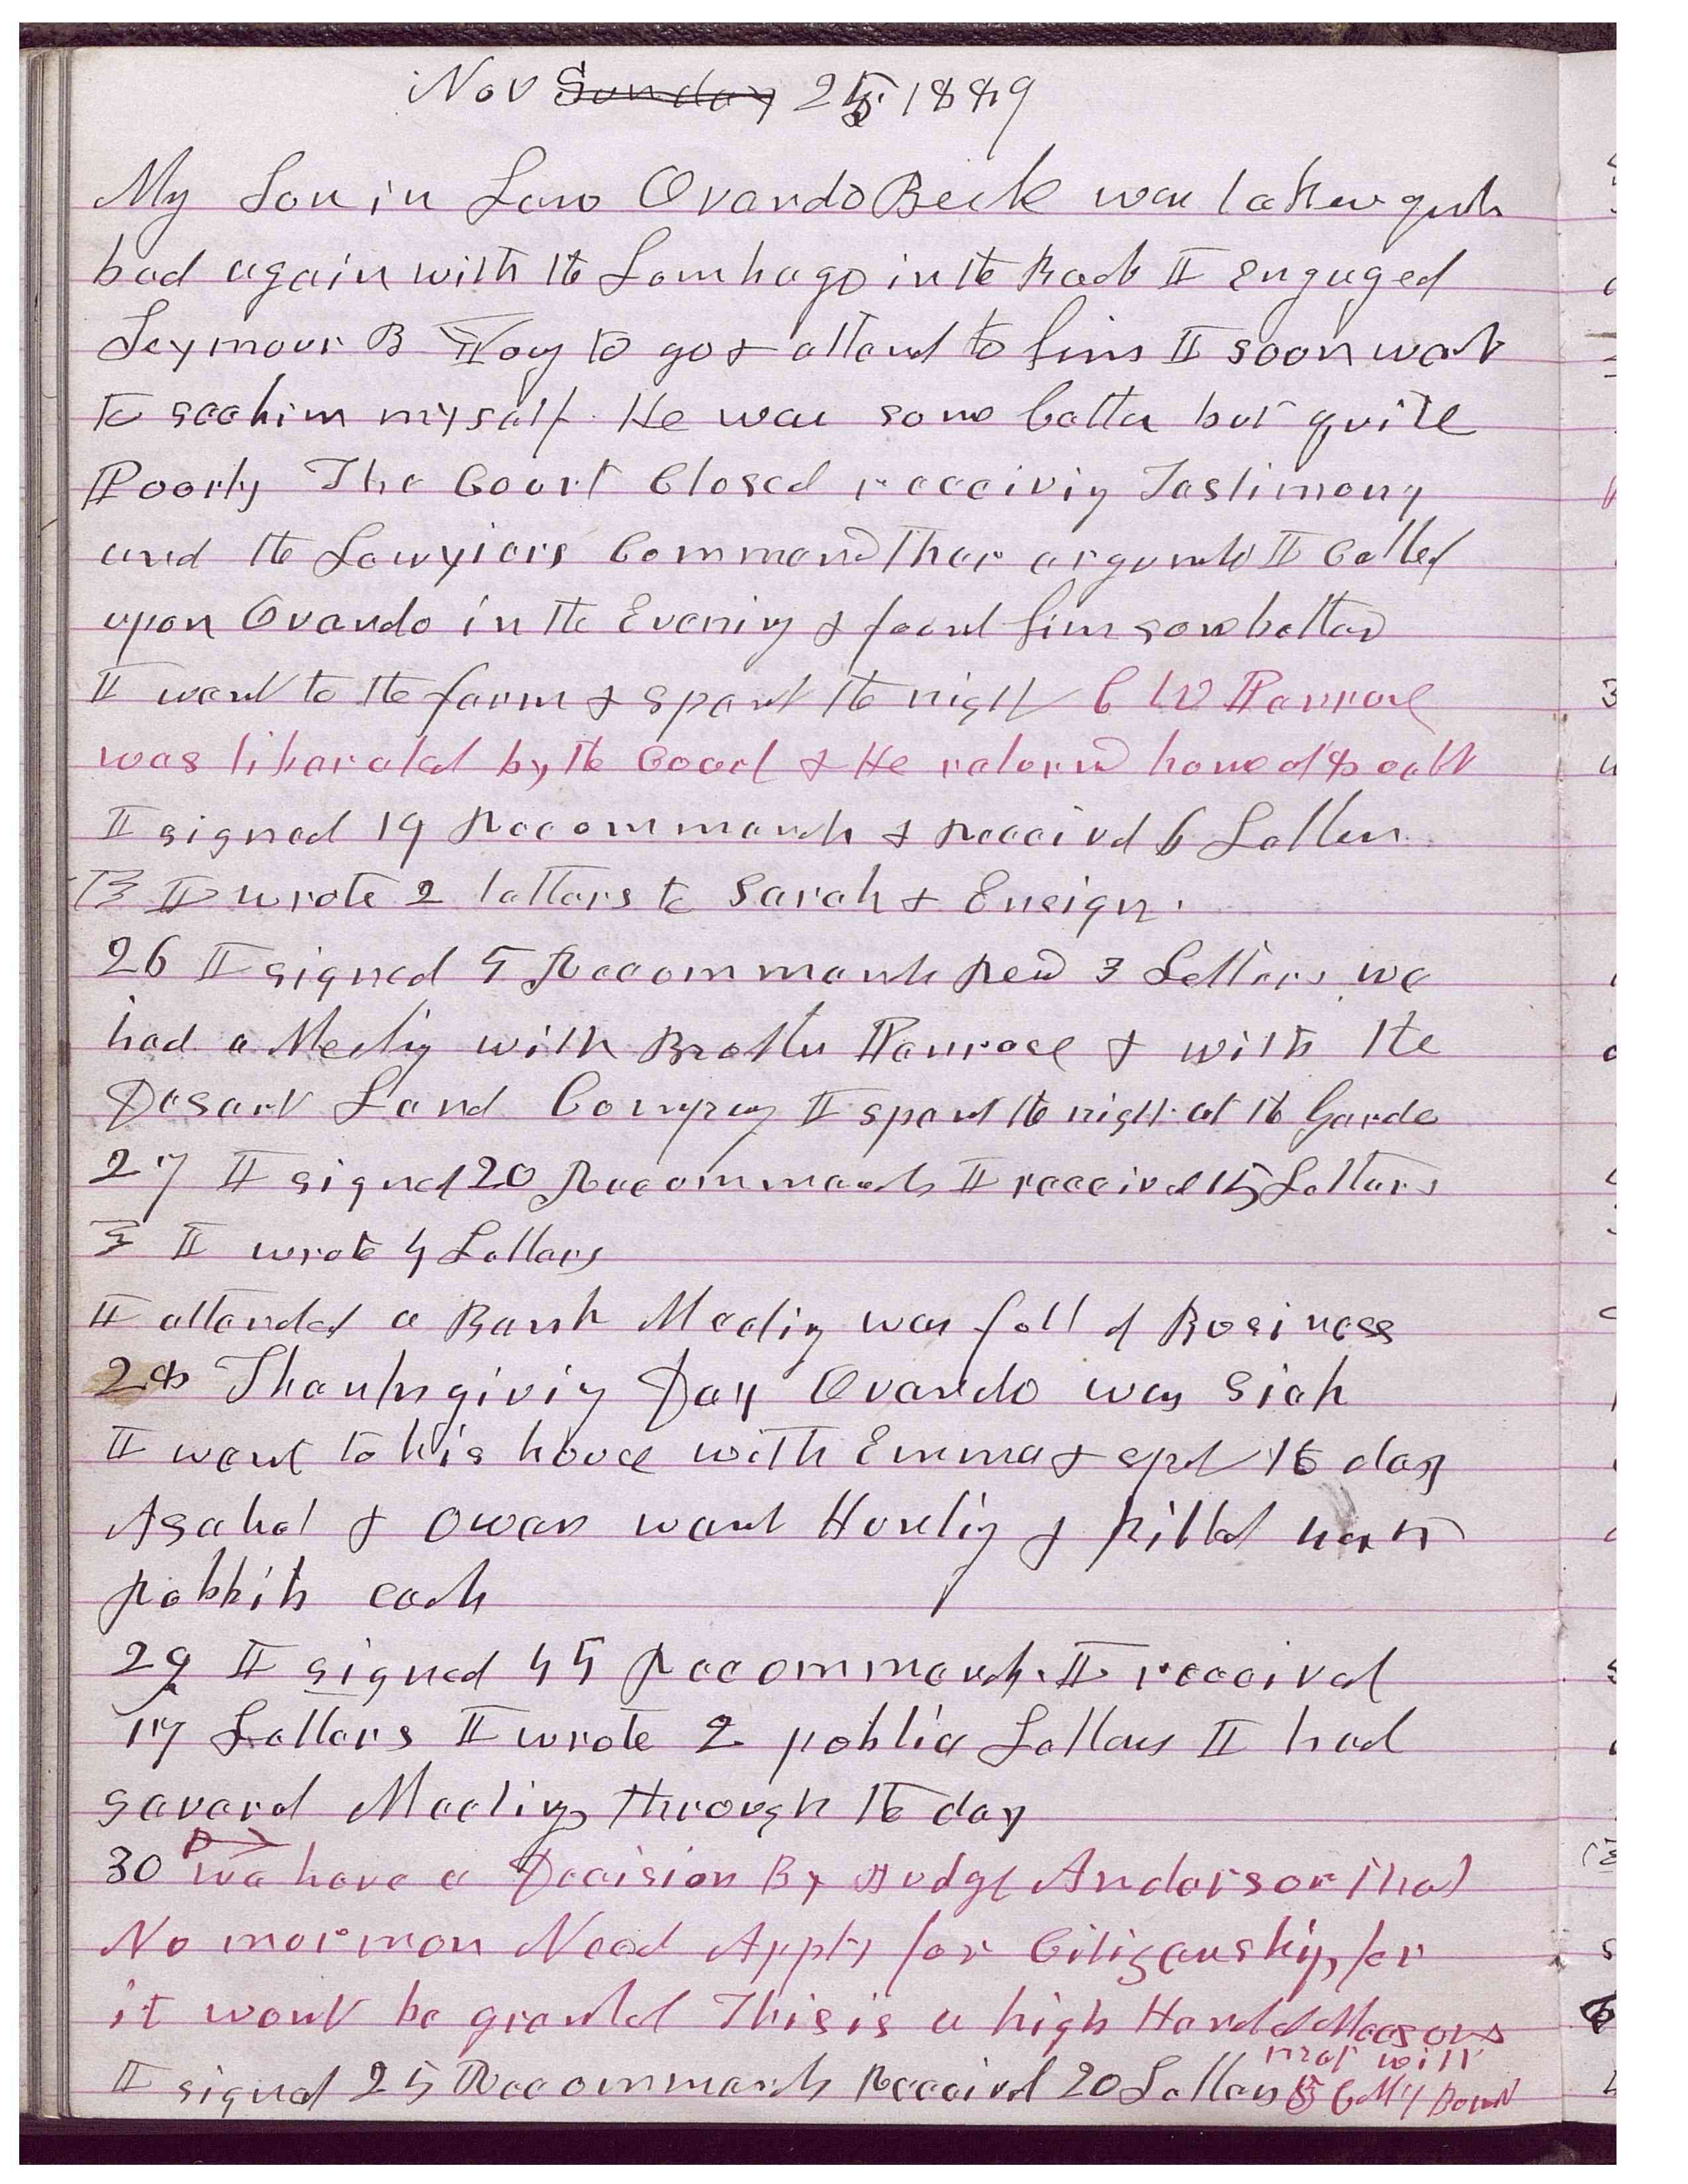 Nov Sunday 25, 1889
My Son in Law Ovando Beebe was taken quite
bad again with the Lombago in the Back I engaged
Seymour B Young to go & attend to him I soon went
to see him myself. He was some better but quite
Poorly The Court Closed receiving Testimony
and the Lawyiers Commencd Their arguments I Called
upon Ovando in the Evening & found him some better
I went to the farm & spent the night C W Penrose
was liberated by the Court & He returnd home at 8 oclk
I signed 19 Recommends & Received 6 Letters
I wrote 2 letters to Sarah & Ensign.
26 I signed 5 Recommends Recd 3 Letters we
had a Meeting with Brother Penrose & with the
Desart Land Company I spent the night at the Garde
27 I signed 20 Recommends I received 15 Letters
I wrote 4 Letters
I attended a Bank Meeting was full of Business
28 Thanksgiving Day Ovando was sick
I went to his house with Emma & spt the day
Asahel & Owen went Hunting & killed
rabbits each
29 I signed 45 Recommends. I received
17 Letters I wrote 2 public Letters I had
several Meetings through the day
30 we have a Decision By Judge Anderson that
No mormon Need Apply for Citizenship, for
it wont be granted This is a high Handed Measons
I signed 25 Recommends Received 20 Letters